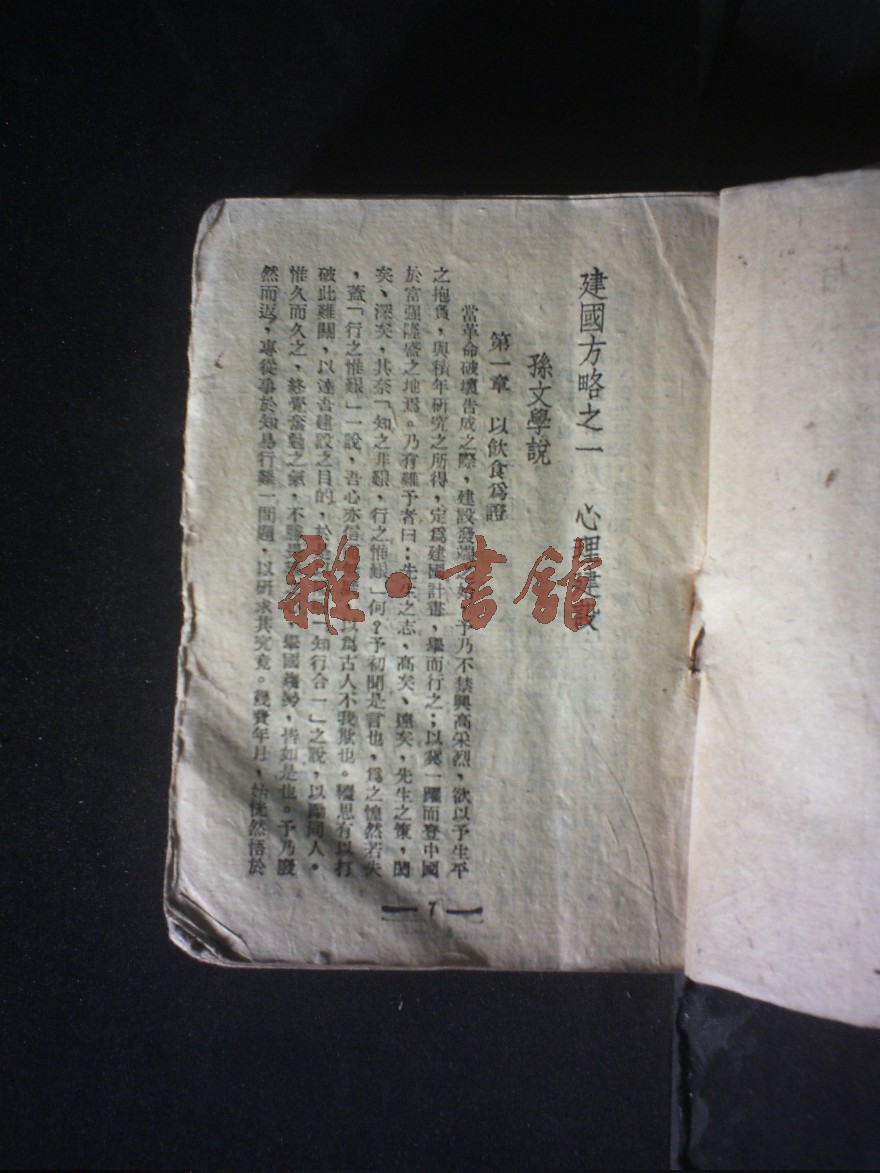 建國方略之一　心理建設
孫文學說
第一章　以飲食爲證
當革命破壞告成之際，建設發端之始，予乃不禁興高采烈，欲以予生平
之抱負，與積年研究之所得，定爲建國計畫，舉而行之；以冀一躍而登中國
於富强隆盛之地焉。乃有難予者曰：先生之志，高矣、遠矣，先生之策，閎
矣、深矣，其奈「知之非艱，行之惟艱」何？予初聞是言也，爲之惶然若失
，蓋「行之惟艱」一說，吾心亦信 以爲古人不我欺也。繼思有以打
破此難關，以達吾建設之目的，於 「知行合一」之說，以勵同人。
惟久而久之，終覺奮勉之氣，不勝 舉國趨 ，皆如是也。予乃廢
然而返，專從事於知易行難一問題，以研求其究竟。幾費年月，始恍然悟於
7
雜·書館